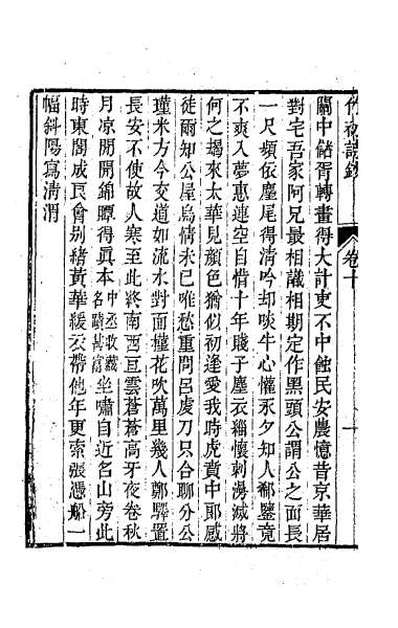 卷十
關中儲胥轉畫得大計更不中蝕民安農憶昔京華居
對宅吾家阿兄最相議相期定作黑頭公謂公之面長
一尺頻依塵尾得清吟却啖牛心懽永夕知人郗鑒竟
不爽入夢惠連空自惜十年賤子塵衣緇懷刺漫滅將
何之朅來太華見顏色猶似初逢愛我時虎賁中郞感
徒爾知公屋烏情未已唯愁重問呂虔刀只合聊分公
瑾米方今交道如流水對面攡花吹萬里幾人鄭驛置
長安不使故人寒至此終南西亘雲蒼蒼高牙夜卷秋
月凉開開錦贉得眞本中丞收藏名蹟甚富坐嘯自近名山旁此
時東閣咸良會别緒黃華緩衣帶他年更索張憑船一
幅斜陽寫淸渭